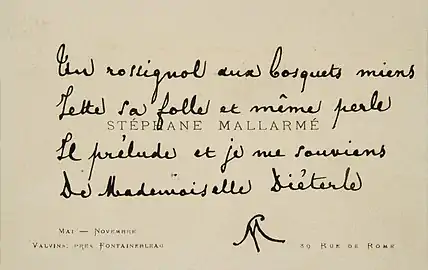 Un rossignol aux bosquets miens
Jette sa folle et même perle
STÉPHANE MALLARMÉ
Il prélude et je me souviens
De Mademoiselle Diéterle
SM
MAI — NOVEMBRE
VALVINS, PRÈS FONTAINEBLEAU
89 RUE DE ROME